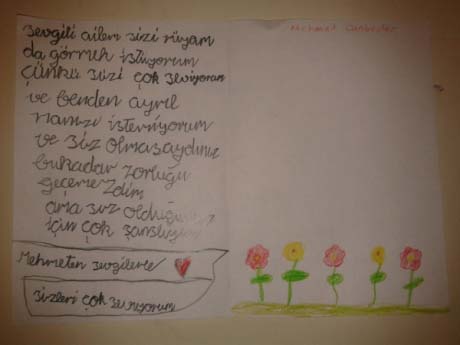 sevgili ailem sizi rüyam
da görmek istiyorum
çünkü sizi çok seviyorum
ve benden ayrıl
manızı istemiyorum
ve siz olmasaydınız
bukadar zorluğu
geçemezdim
ama siz olduğunuz
için çok şanslıyım
Mehmeten sevgilerle
sizleri çok seviyorum
Mehmet